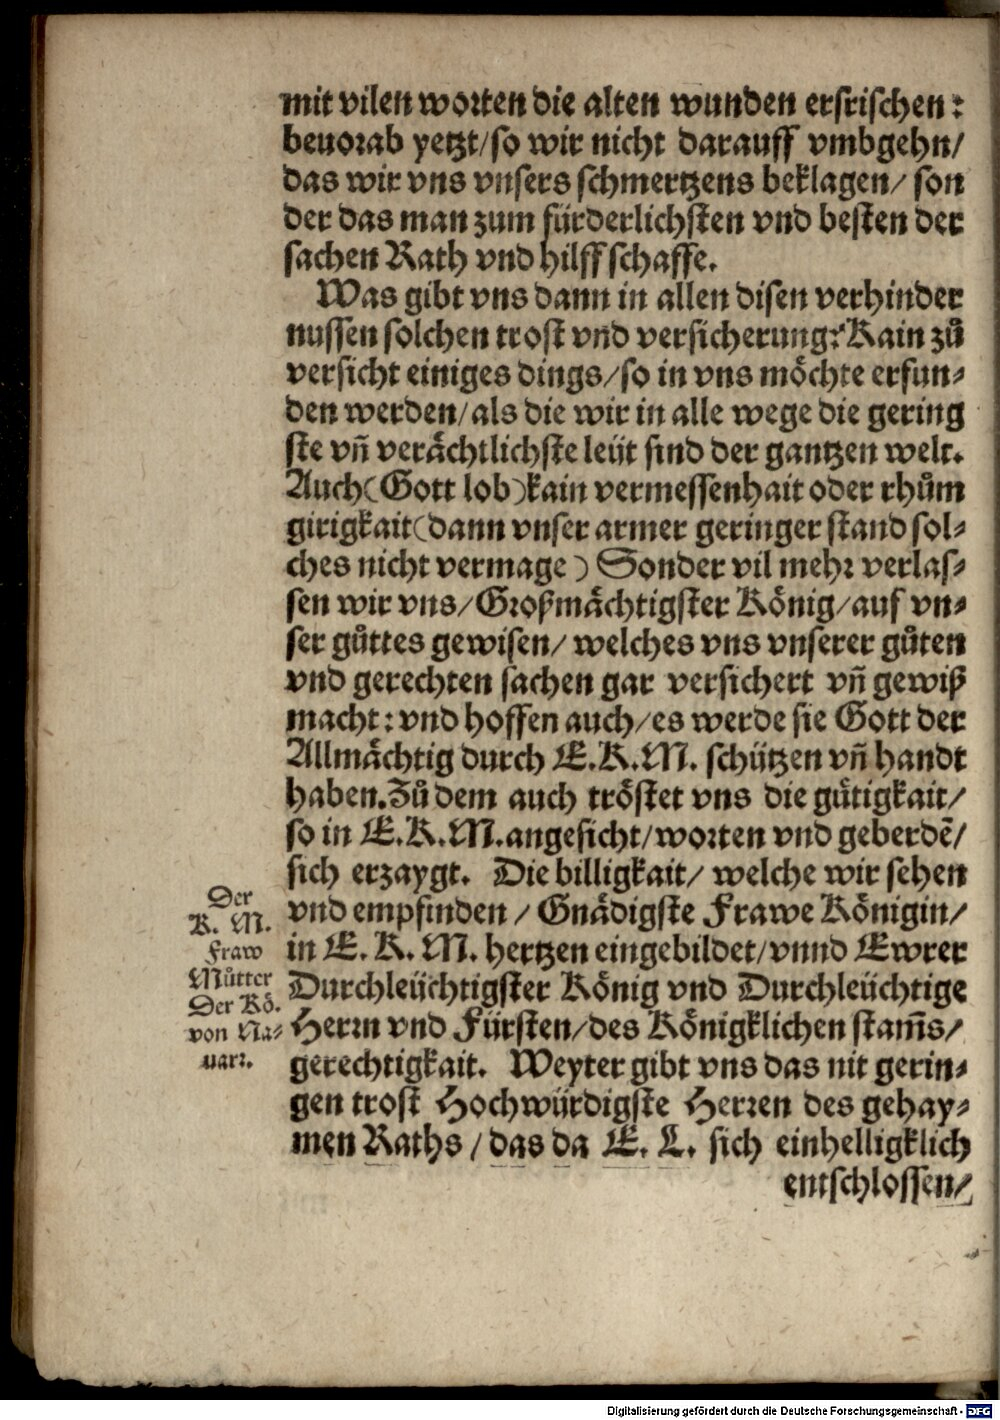 mit vilen worten die alten wunden erfrischen:
beuorab yetzt/so wir nicht darauff vmbgehn/
das wir vns vnsers schmertzens beklagen/ son
der das man zum fürderlichsten vnd besten der
sachen Rath vnd hilff schaffe.
Was gibt vns dann in allen disen verhinder
nussen solchen trost vnd versicherung? Kain zů
versicht einiges dings/so in vns möchte erfun-
den werden/als die wir in alle wege die gering
ste vñ verächtlichste leüt sind der gantzen welt.
Auch(Gott lob)kain vermessenhait oder rhům
girigkait(dann vnser armer geringer stand sol-
ches nicht vermage) Sonder vil mehr verlas-
sen wir vns/Großmächtigster König/auf vn-
ser gůttes gewisen/ welches vns vnserer gůten
vnd gerechten sachen gar versichert vñ gewiß
macht: vnd hoffen auch/es werde sie Gott der
Allmächtig durch E.K.M. schützen vñ handt
haben. Zů dem auch tröstet vns die gütigkait/
so in E.K.M. angesicht/worten vnd geberdẽ/
sich erzaygt. Die billigkait/ welche wir sehen
vnd empfinden / Gnädigste Frawe Königin/
in E. K. M. hertzen eingebildet/vnnd Ewrer
Durchleüchtigster König vnd Durchleüchtige
Herrn vnd Fürsten/des Königklichen stam̃s/
gerechtigkait. Weyter gibt vns das nit gerin-
gen trost Hochwürdigste Herren des gehay-
men Raths / das da E. L. sich einhelligklich
entschlossen/
Der
K. M.
Fraw
Můtter
Der Kö.
von Na-
uarr.
Digitalisierung gefördert durch die Deutsche Forschungsgemeinschaft - DFG